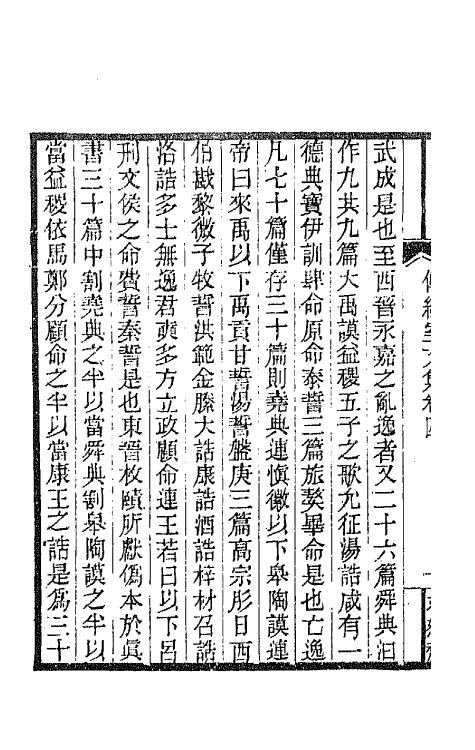 武成是也至西晉永嘉之亂逸者又二十六篇舜典汨
作九共九篇大禹謨益稷五子之歌允征湯誥咸有一
德典寶伊訓肆命原命泰誓三篇旅獒畢命是也亡逸
凡七十篇僅存三十篇則堯典連愼徽以下臯陶謨連
帝曰來禹以下禹貢甘誓湯誓盤庚三篇高宗肜日西
伯戡黎微子牧誓洪範金縢大誥康誥酒誥梓材召誥
洛誥多士無逸君奭多方立政顧命連王若曰以下呂
刑文侯之命費誓秦誓是也東晉枚賾所獻僞本於眞
書三十篇中割堯典之半以當舜典割臯陶謨之半以
當益稷依馬鄭分顧命之半以當康王之誥是爲三十